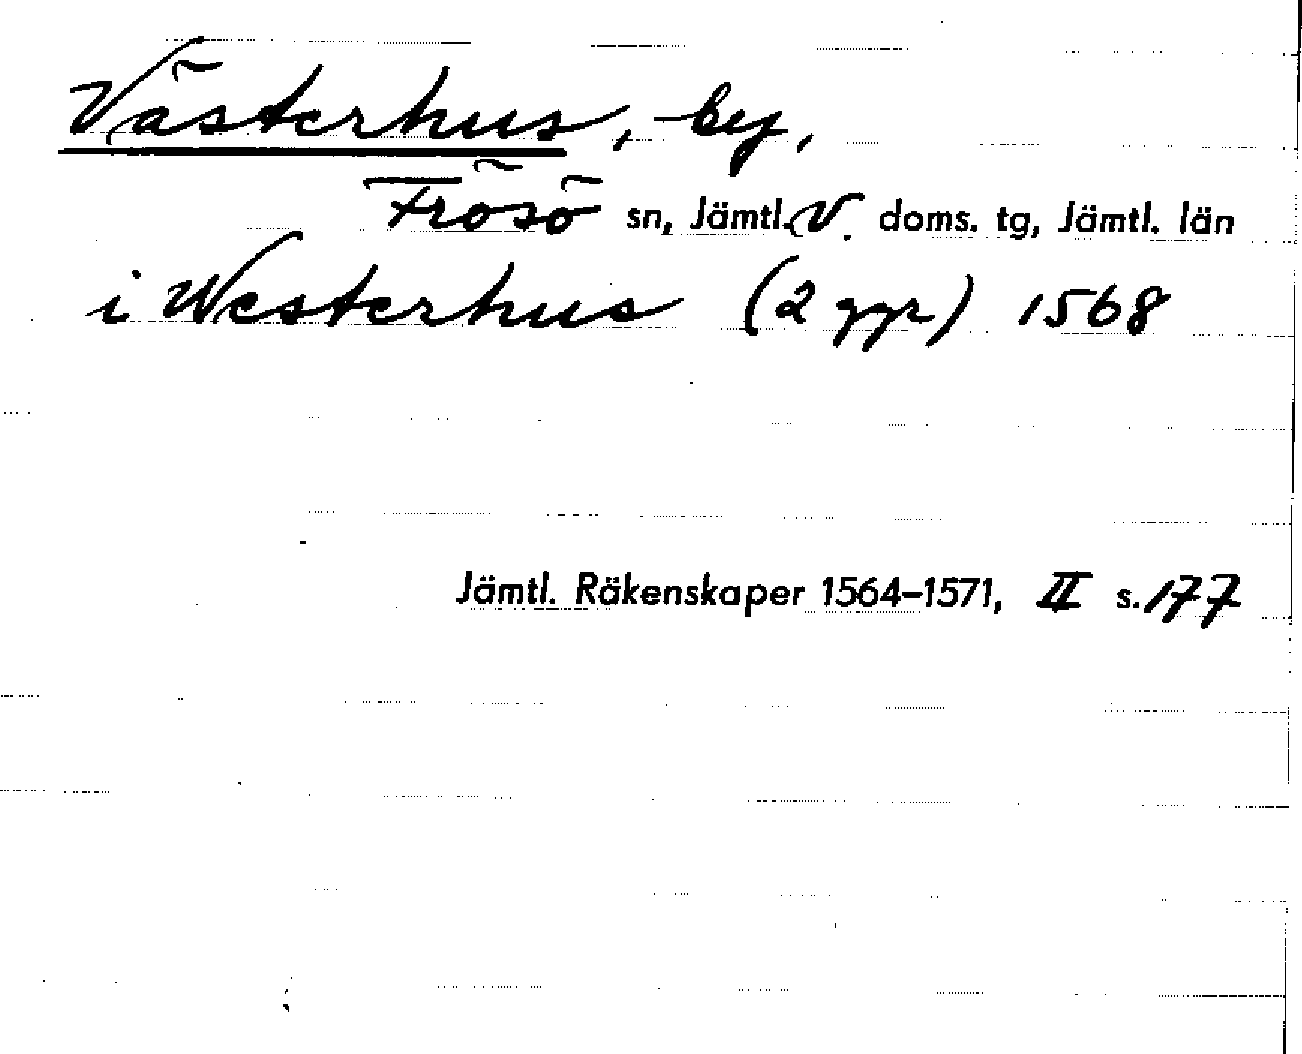 Västerhus, by,
Frösö sn, Jämtl. V. doms. tg, Jämtl. län
i Westerhus (2 ggr) 1568
Jämtl. Räkenskaper 1564–1571, II s. 177